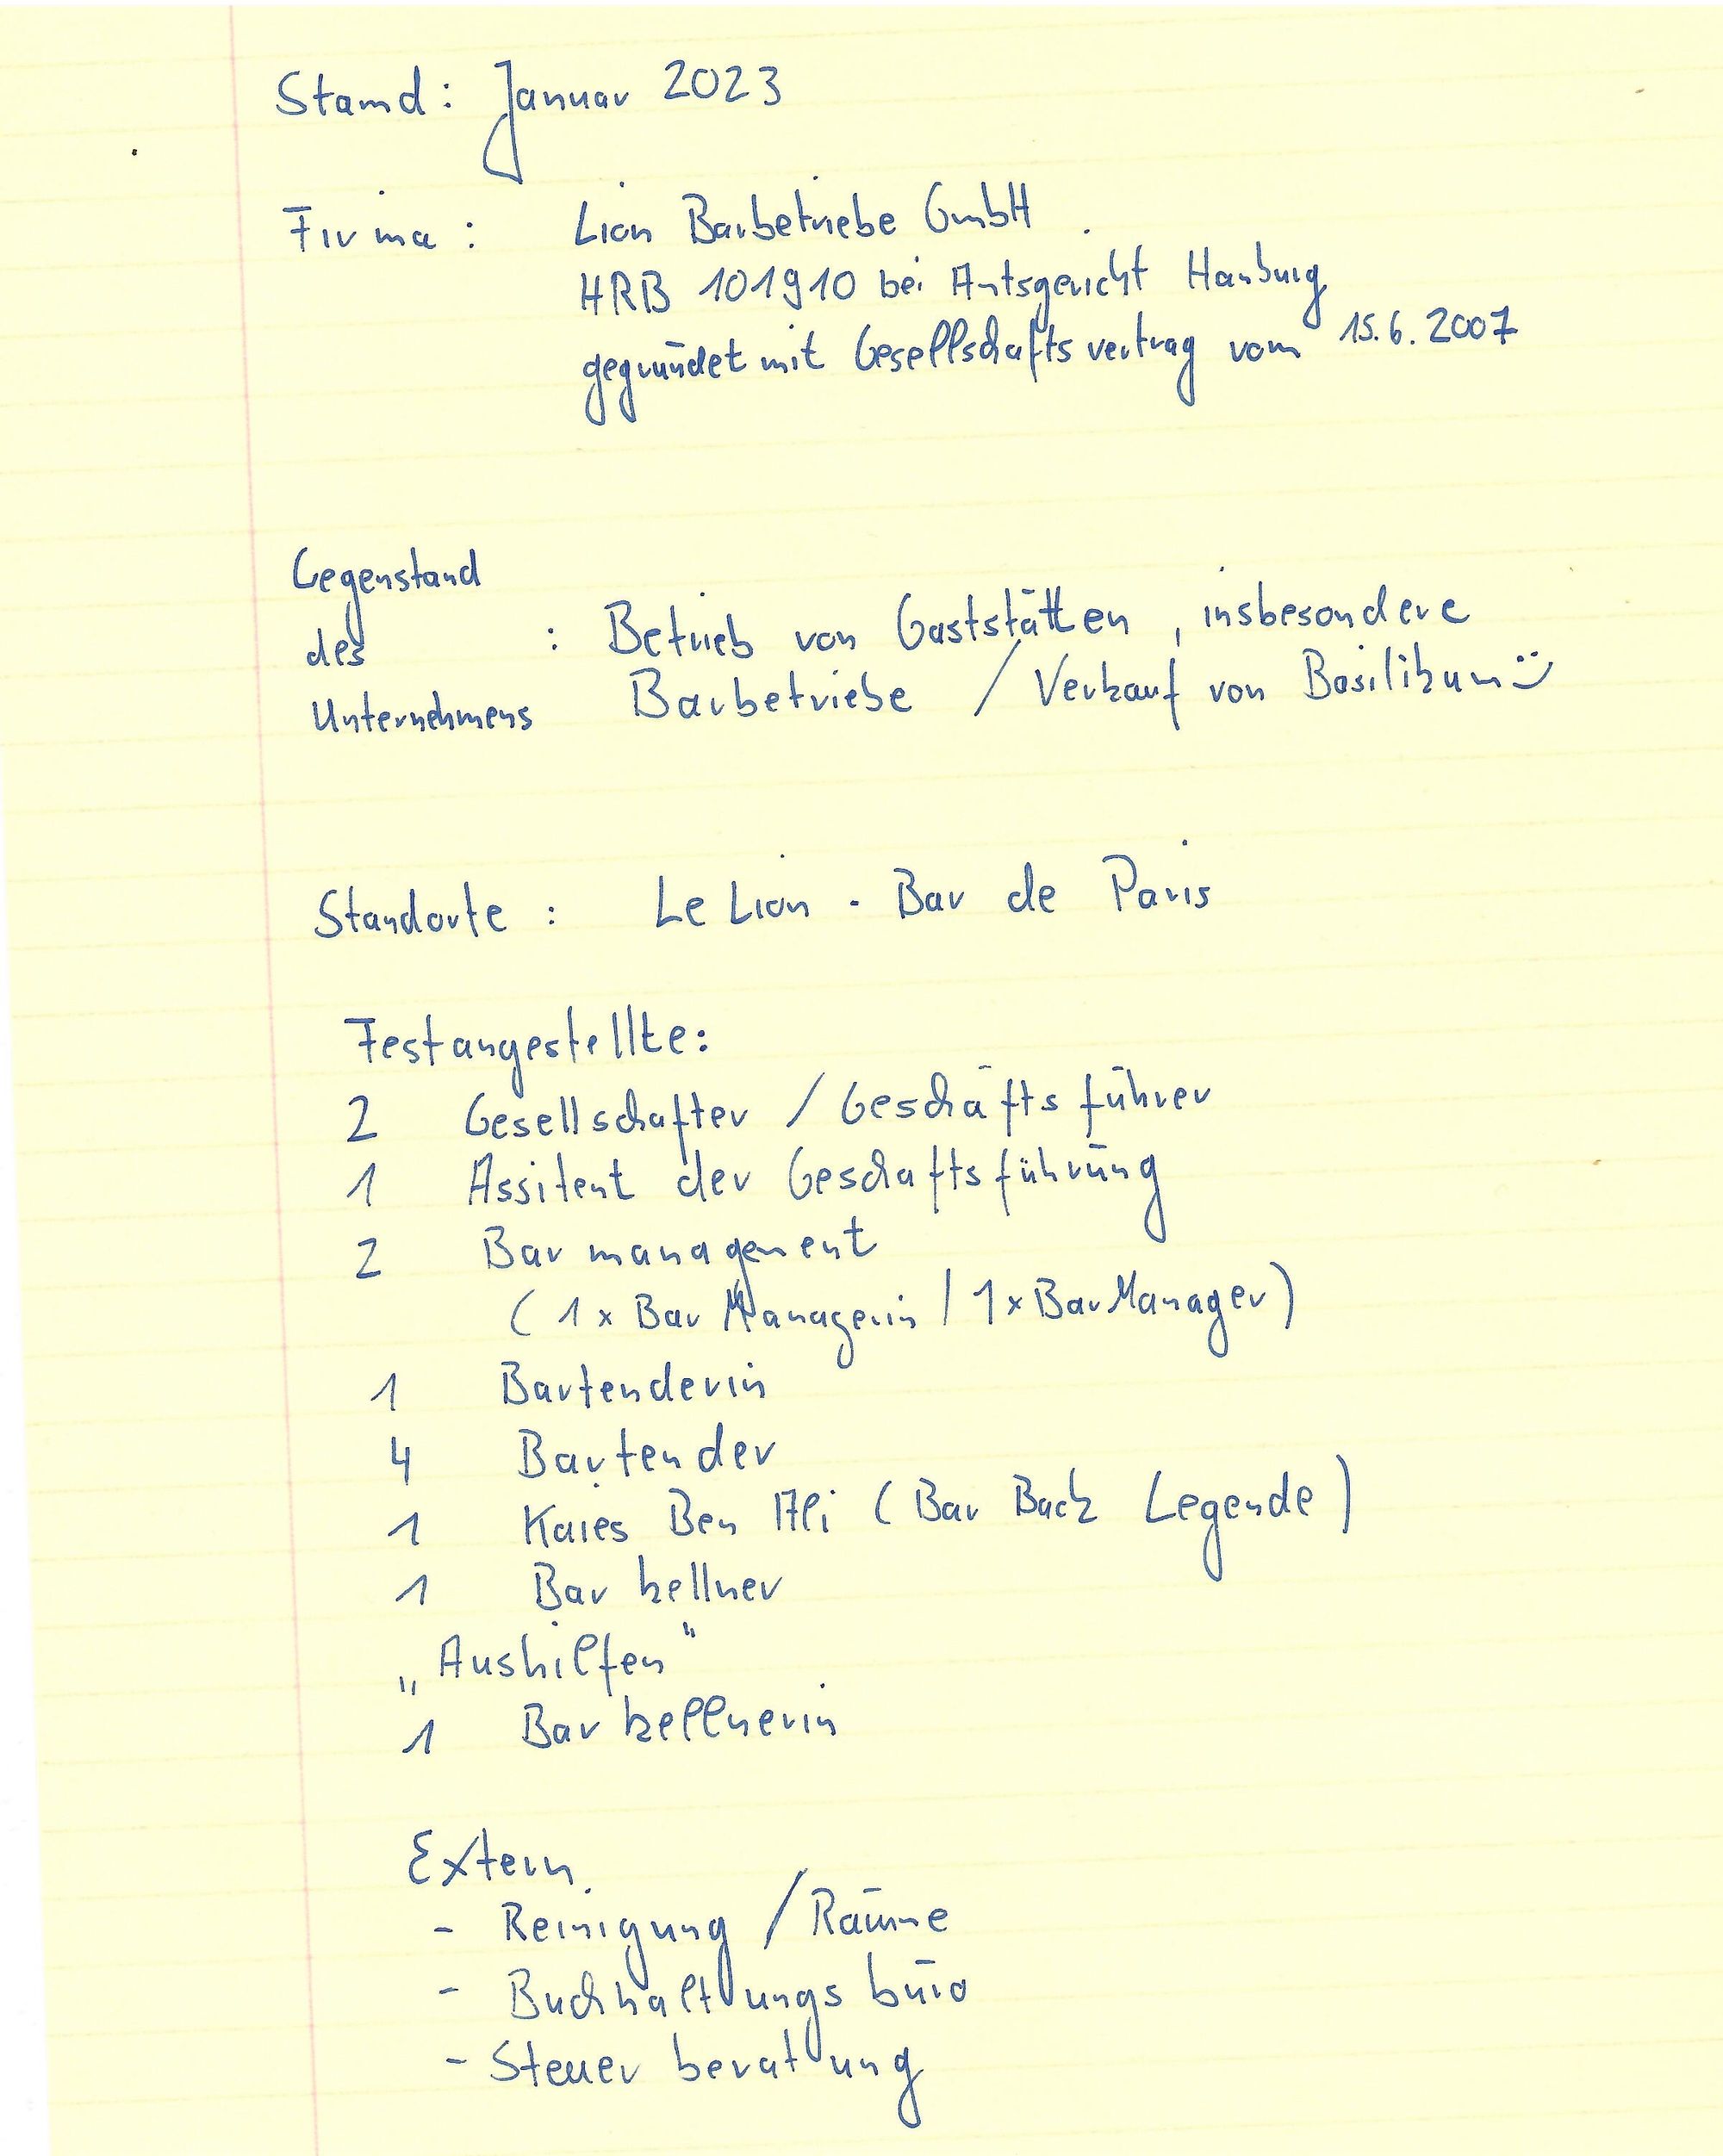 Stand: Januar 2023
Firma: Lion Barbetriebe GmbH
HRB 101910 bei Amtsgericht Hamburg
gegründet mit Gesellschaftsvertrag vom 15.6.2007
Gegenstand
des : Betrieb von Gaststätten, insbesondere
Unternehmens Barbetriebe / Verkauf von Basilikum :)
Standorte: Le Lion - Bar de Paris
Festangestellte:
2 Gesellschafter / Geschäftsführer
1 Assitent der Geschaftsführung
2 Barmanagement
(1x Bar Managerin / 1x Bar Manager)
1 Bartenderin
4 Bartender
1 Kaies Ben Ali (Bar Back Legende)
1 Barkellner
„Aushilfen“
1 Barkellnerin
Extern
- Reinigung / Räume
- Buchhaltungsbüro
- Steuerberatung